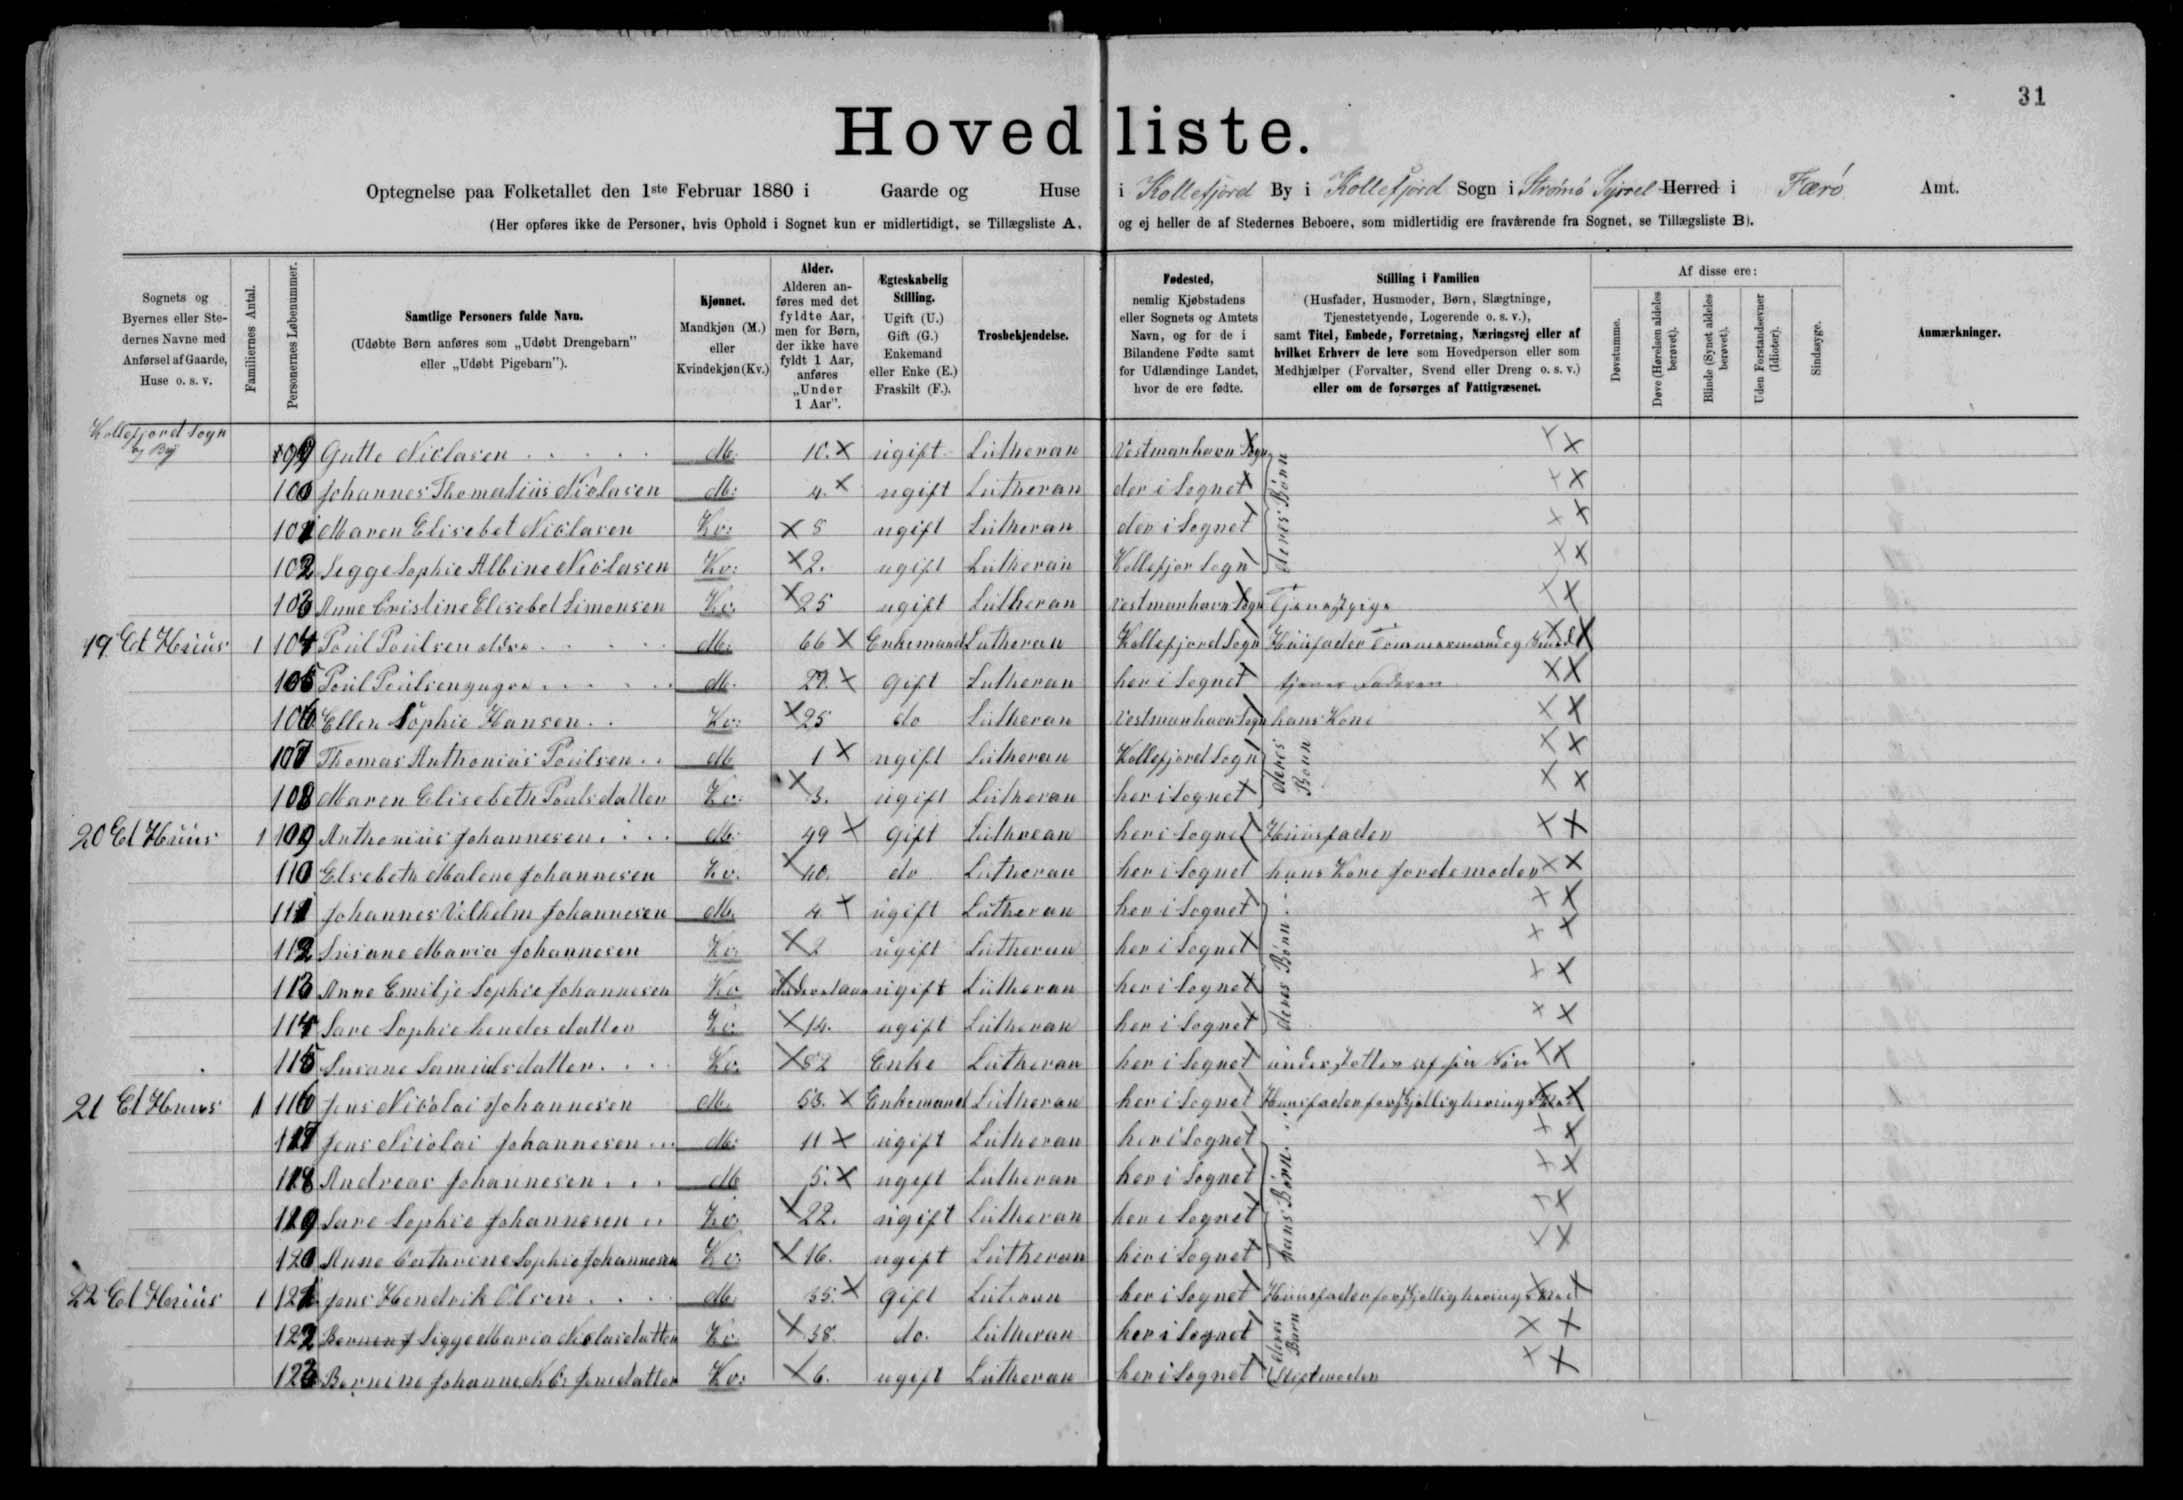 31
Hovedliste.
Optegnelse paa Folketallet den 1ste Februar 1880 i Gaarde og Huse i Kollefjord By i Kollefjord Sogn i Strømø Syssel Herred i Færø Amt.
(Her opføres ikke de Personer, hvis Ophold i Sognet kun er midlertidigt, se Tillægsliste A, og ej heller de af Stedernes Beboere, som midlertidig ere fraværende fra Sognet, se Tillægsliste B).
Sognets og Byernes eller Stedernes Navne med Anførsel af Gaarde, Huse o. s. v.
Familiernes Antal.
Personernes Løbenummer.
Samtlige Personers fulde Navn.
(Udøbte Børn anføres som „Udøbt Drengebarn" eller „Udøbt Pigebarn").
Kjønnet.
Mandkjøn (M.) eller Kvindekjøn (Kv.)
Alder.
Alderen anføres med det fyldte Aar, men for Børn, der ikke have fyldt 1 Aar, anføres „Under 1 Aar".
Ægteskabelig Stilling.
Ugift (U.) Gift (G.) Enkemand eller Enke (E.) Fraskilt (F.).
Trosbekjendelse.
Fødested,
nemlig Kjøbstadens eller Sognets og Amtets Navn, og for de i Bilandene Fødte samt for Udlændinge Landet, hvor de ere fødte.
Stilling i Familien
(Husfader, Husmoder, Børn, Slægtninge, Tjenestetyende, Logerende o. s. v.), samt Titel, Embede, Forretning, Næringsvej eller af hvilket Erhverv de leve som Hovedperson eller som Medhjælper (Forvalter, Svend eller Dreng o. s. v.) eller om de forsørges af Fattigvæsenet.
Af disse ere:
Døvstumme.
Døve (Hørelsen aldeles berøvet).
Blinde (Synet aldeles berøvet).
Uden Forstandsevner (Idioter).
Sindssyge.
Anmærkninger.
Kollefjord Sogn og By
99 Gutte Niclasen M. 10. ugift Lutheran Vestmanhavn Sogn
100 Johannes Thomatius Niclasen M: 4. ugift Lutheran der i Sognet
101 Maren Elisebet Niclasen Kv: 8 ugift Lutheran der i Sognet
102 Sigge Sophie Albine Niclasen Kv: 2. ugift Lutheran Kollefjor Sogn
deres Börn
103 Anne Cristine Elisebet Simonsen Kv. 25 ugift Lutheran Vestmanhavn Sogn Tjenestpige
19. Et Huus 1 104 Poul Poulsen M: 66 Enkemand Lutheran Kollefjord Sogn Huusfader Tömmermand og
105 Poul Poulsen yngre M. 27. Gift Lutheran her i Sognet tjener Faderen
106 Ellen Sophie Hansen Kv: 25 do Lutheran Vestmanhavn Sogn hans Kone
107 Thomas Anthonius Poulsen M 1 ugift Lutheran Kollefjord Sogn
108 Maren Elisebeth Poulsdatter Kv: 3. ugift Lutheran her i Sognet
deres Börn
20 Et Huus 1 109 Anthonius Johannesen M. 49 Gift Luthrean her i Sognet Huusfader
110 Elsebeth Malene Johannesen Kv. 40. do Lutheran her i Sognet hans Kone Jordemoder
111 Johannes Vilhelm Johannesen M. 4. ugift Lutheran her i Sognet
112 Susane Maria Johannesen Kv. 2 ugift Lutheran her i Sognet
113 Anne Emilje Sophie Johannesen Kv Under 1 Aar ugift Lutheran her i Sognet
114 Sare Sophie hendes datter Kv. 14. ugift Lutheran her i Sognet
deres Börn
115 Susane Samuelsdatter Kv. 82 Enke Lutheran her i Sognet understottes af sin Sön
21 Et Huus 1 116 Jens Nicolai Johannesen M. 53. Enkemand Lutheran her i Sognet Huusfader
117 Jens Nicolai Johannesen M: 11 ugift Lutheran her i Sognet
118 Andreas Johannesen M 5. ugift Lutheran her i Sognet
119 Sare Sophie Johannesen Kv: 22. ugift Lutheran her i Sognet
120 Anne Catharine Sophie Johannesen Kv: 16. ugift Lutheran her i Sognet
hans Börn.
22 Et Huus 1 121 Jens Hendrik Olsen M. 55. Gift Lutheran her i Sognet Huusfader
122 Sigge Maria Niclasdatter Kv. 38. do. Lutheran her i Sognet
123 Bernine Johanne Jensdatter Kv: 6. ugift Lutheran her i Sognet Stifmoder
deres Barn